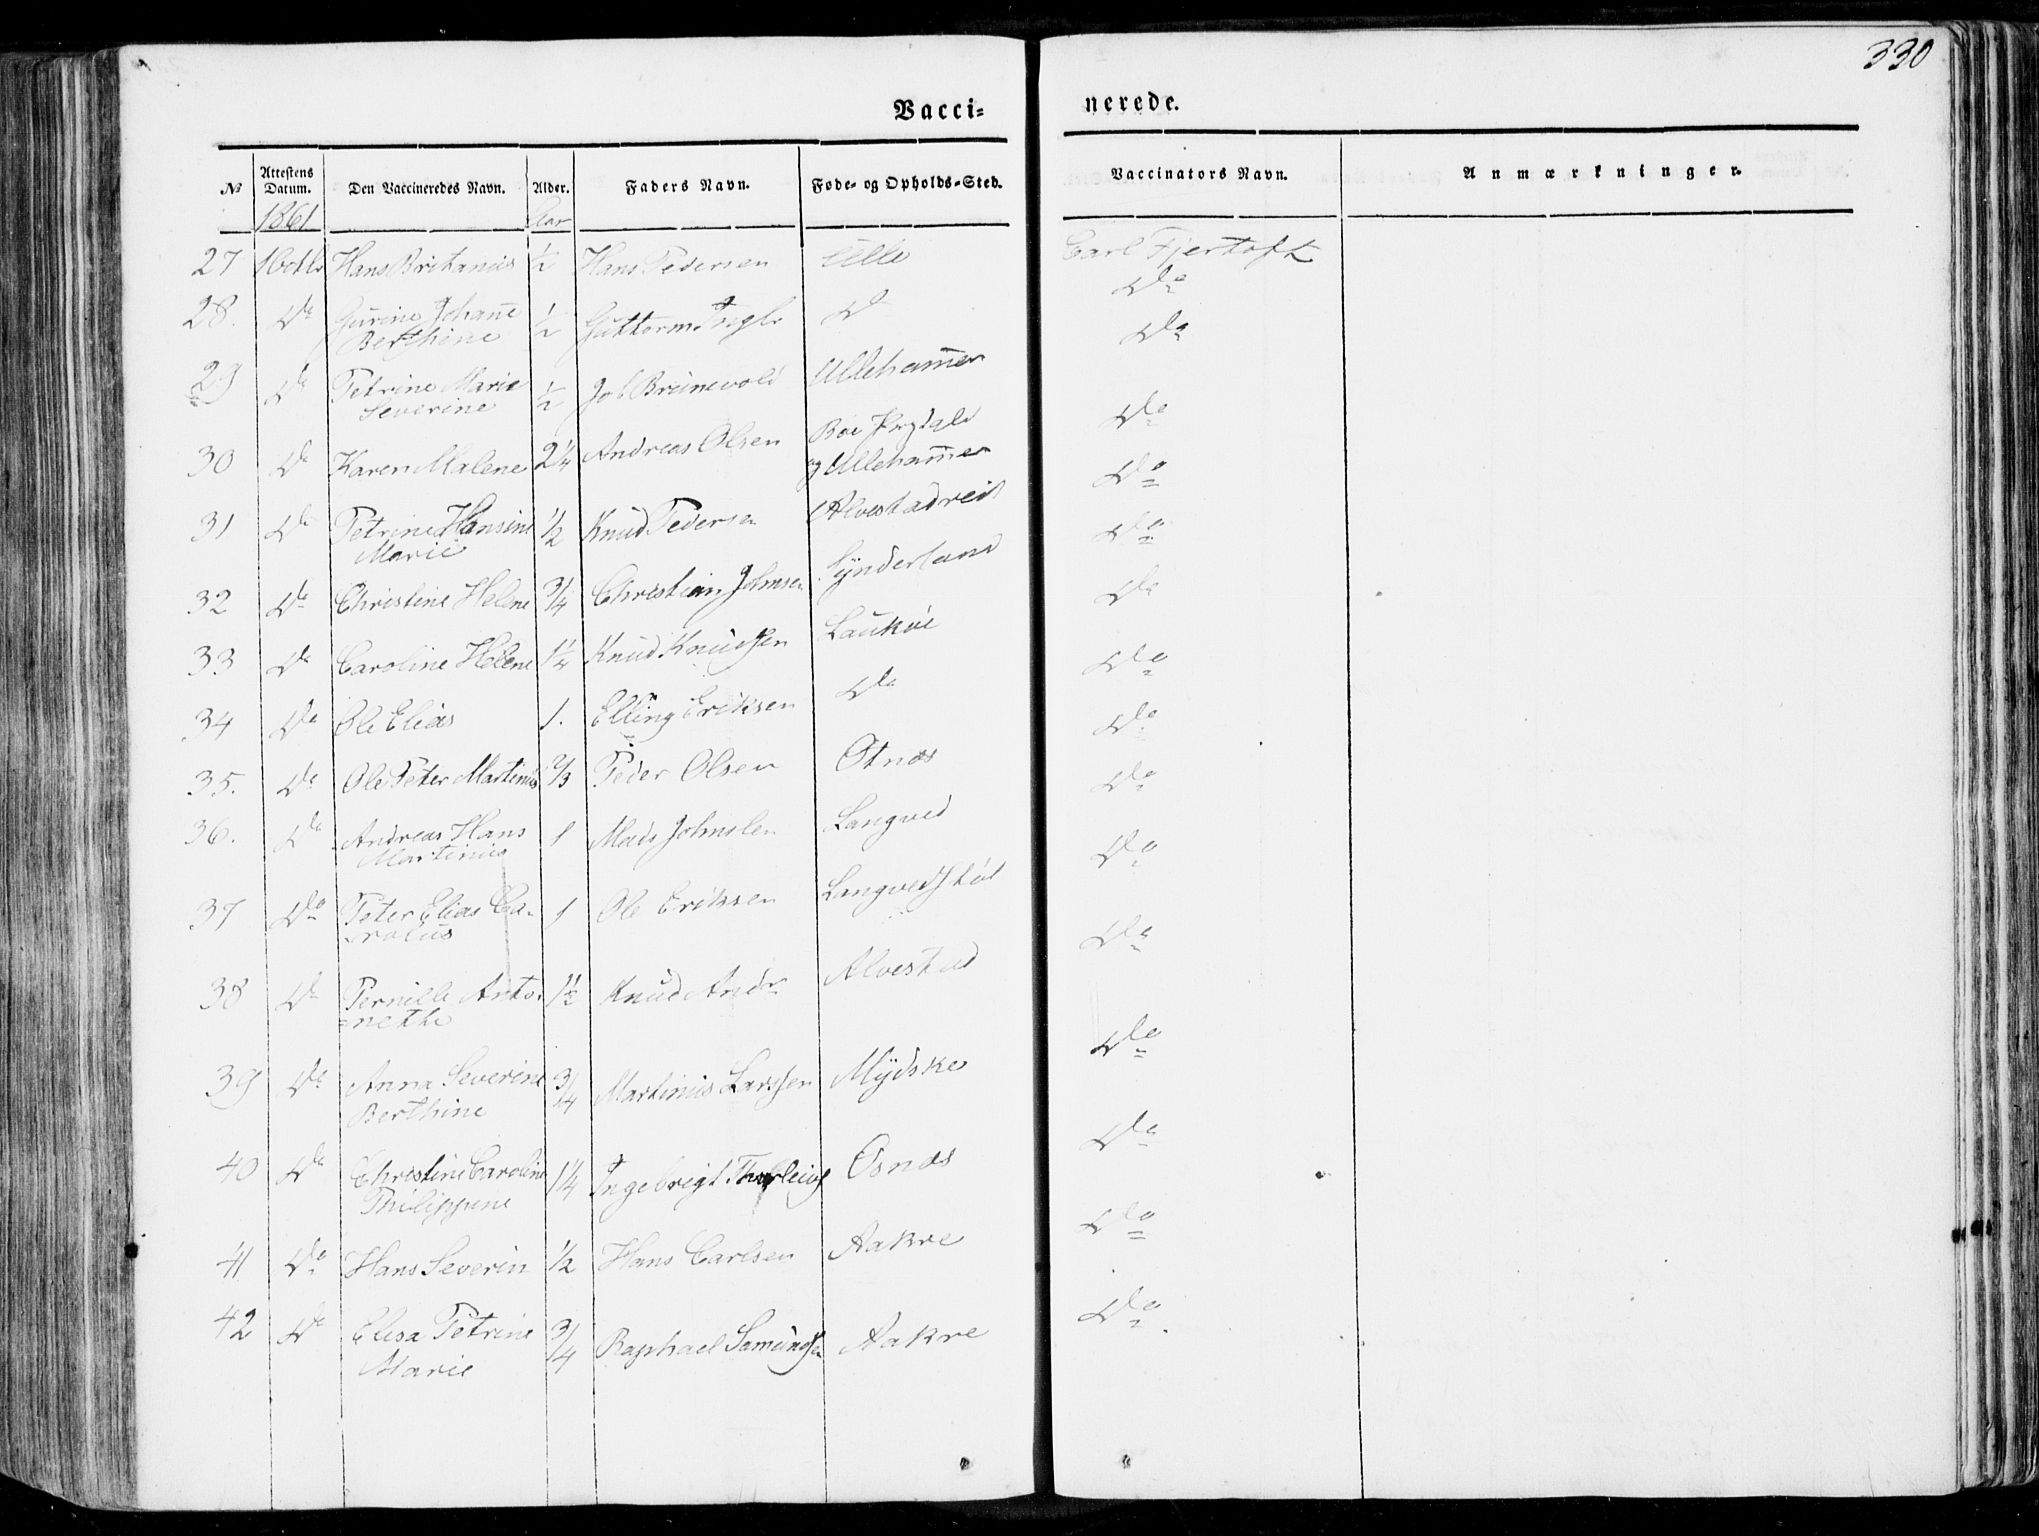 330
Vacci= nerede.
№ Attestens Datum. Den Vaccineredes Navn. Alder. Faders Navn. Føde- og Opholds-Sted. Vaccinators Navn. Anmærkninger.
1861 Aar
27 16 Octbr Hans Britanius ½ Hans Pedersen Ulle Carl Fjertoft
28. Do Gurine Johan̄e ½ Guttorm Ingbr D Do
Berthine
29 Do Petrine Marie ½ Job Brunevold Ulleham̄er Do
Severine
30 Do Karen Malene 2¼ Andreas Olsen Boe Do
og Ulleham̄er
31 Do Petrine Hansine ½ Knud Pedersen Alvestadreit Do
Marie
32 Do Christine Helene ¾ Christian Johnsen Synderland Do
33 Do Caroline Helene 1¼ Knud Knudsen Laukøe Do
34 Do Ole Elias 1. Elling Eriksen Do Do
35. Do Ole Peter Martinus ⅔ Peder Olsen Otnæs Do
36. Do Andreas Hans 1 Mads Johnsen Langved Do
Martinus
37 Do Peter Elias Ca- 1 Ole Eriksen Langvedstøl Do
-rolus
38 Do Pernille Anto- 1½ Knud Andr Alvestad Do
=nette
39 Do Anna Severine ¾ Martinus Larssen Mydske Do
Berthine
40 Do Christine Caroline 1¼ Ingebrigt Thorleivs Osnæs Do
Philippine
41 Do Hans Severin ½ Hans Carlsen Aakre Do
42 Do Elisa Petrine ¾ Raphael Samundsen Aakre Do
Marie